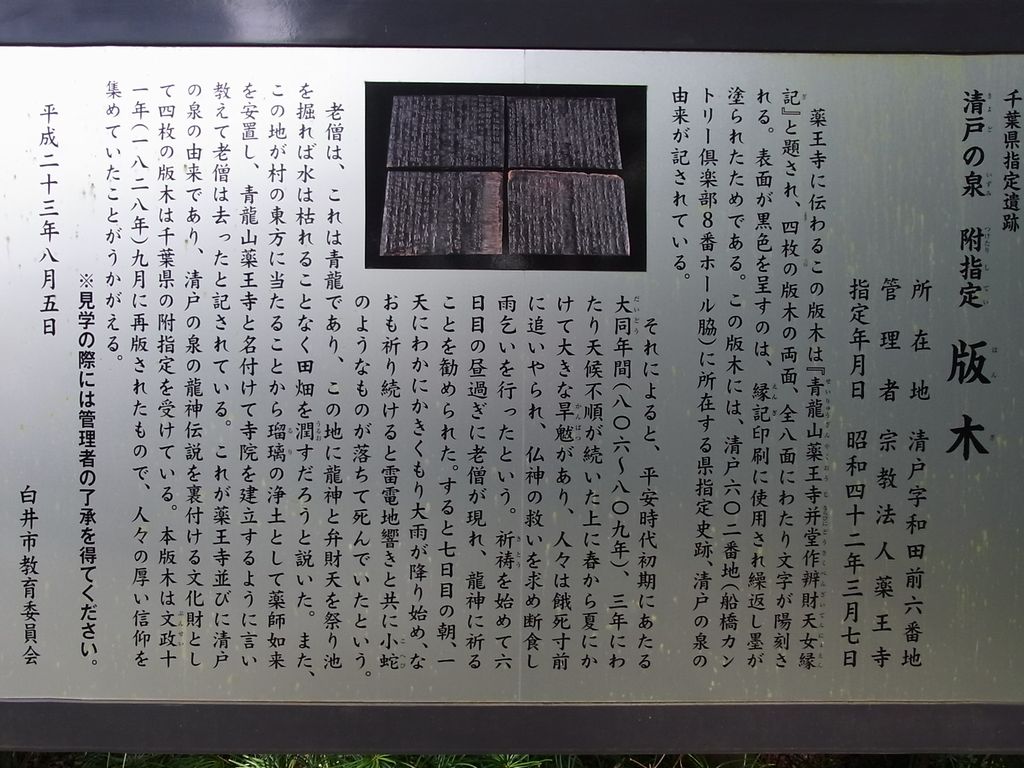 千葉県指定遺跡
清戸の泉 附指定 版木
所在地 清戸字和田前六番地
管理者 宗教法人薬王寺
指定年月日 昭和四十二年三月七日
薬王寺に伝わるこの版木は『青龍山薬王寺并堂作辨財天女縁
記』と題され、四枚の版木の両面、全八面にわたり文字が陽刻さ
れる。表面が黒色を呈すのは、縁記印刷に使用され繰返し墨が
塗られたためである。この版木には、清戸六〇二番地(船橋カン
トリー倶楽部8番ホール脇)に所在する県指定史跡、清戸の泉の
由来が記されている。
それによると、平安時代初期にあたる
大同年間(八〇六〜八〇九年)、三年にわ
たり天候不順が続いた上に春から夏にか
けて大きな旱魃があり、人々は餓死寸前
に追いやられ、仏神の救いを求め断食し
雨乞いを行ったという。祈祷を始めて六
日目の昼過ぎに老僧が現れ、龍神に祈る
ことを勧められた。すると七日目の朝、一
天にわかにかきくもり大雨が降り始め、な
おも祈り続けると雷電地響きと共に小蛇
のようなものが落ちて死んでいたという。
老僧は、これは青龍であり、この地に龍神と弁財天を祭り池
を掘れば水は枯れることなく田畑を潤すだろうと説いた。また、
この地が村の東方に当たることから瑠璃の浄土として薬師如来
を安置し、青龍山薬王寺と名付けて寺院を建立するように言い
教えて老僧は去ったと記されている。これが薬王寺並びに清戸
の泉の由来であり、清戸の泉の龍神伝説を裏付ける文化財とし
て四枚の版木は千葉県の附指定を受けている。本版木は文政十
一年(一八二八年)九月に再版されたもので、人々の厚い信仰を
集めていたことがうかがえる。
※見学の際には管理者の了承を得てください。
平成二十三年八月五日
白井市教育委員会